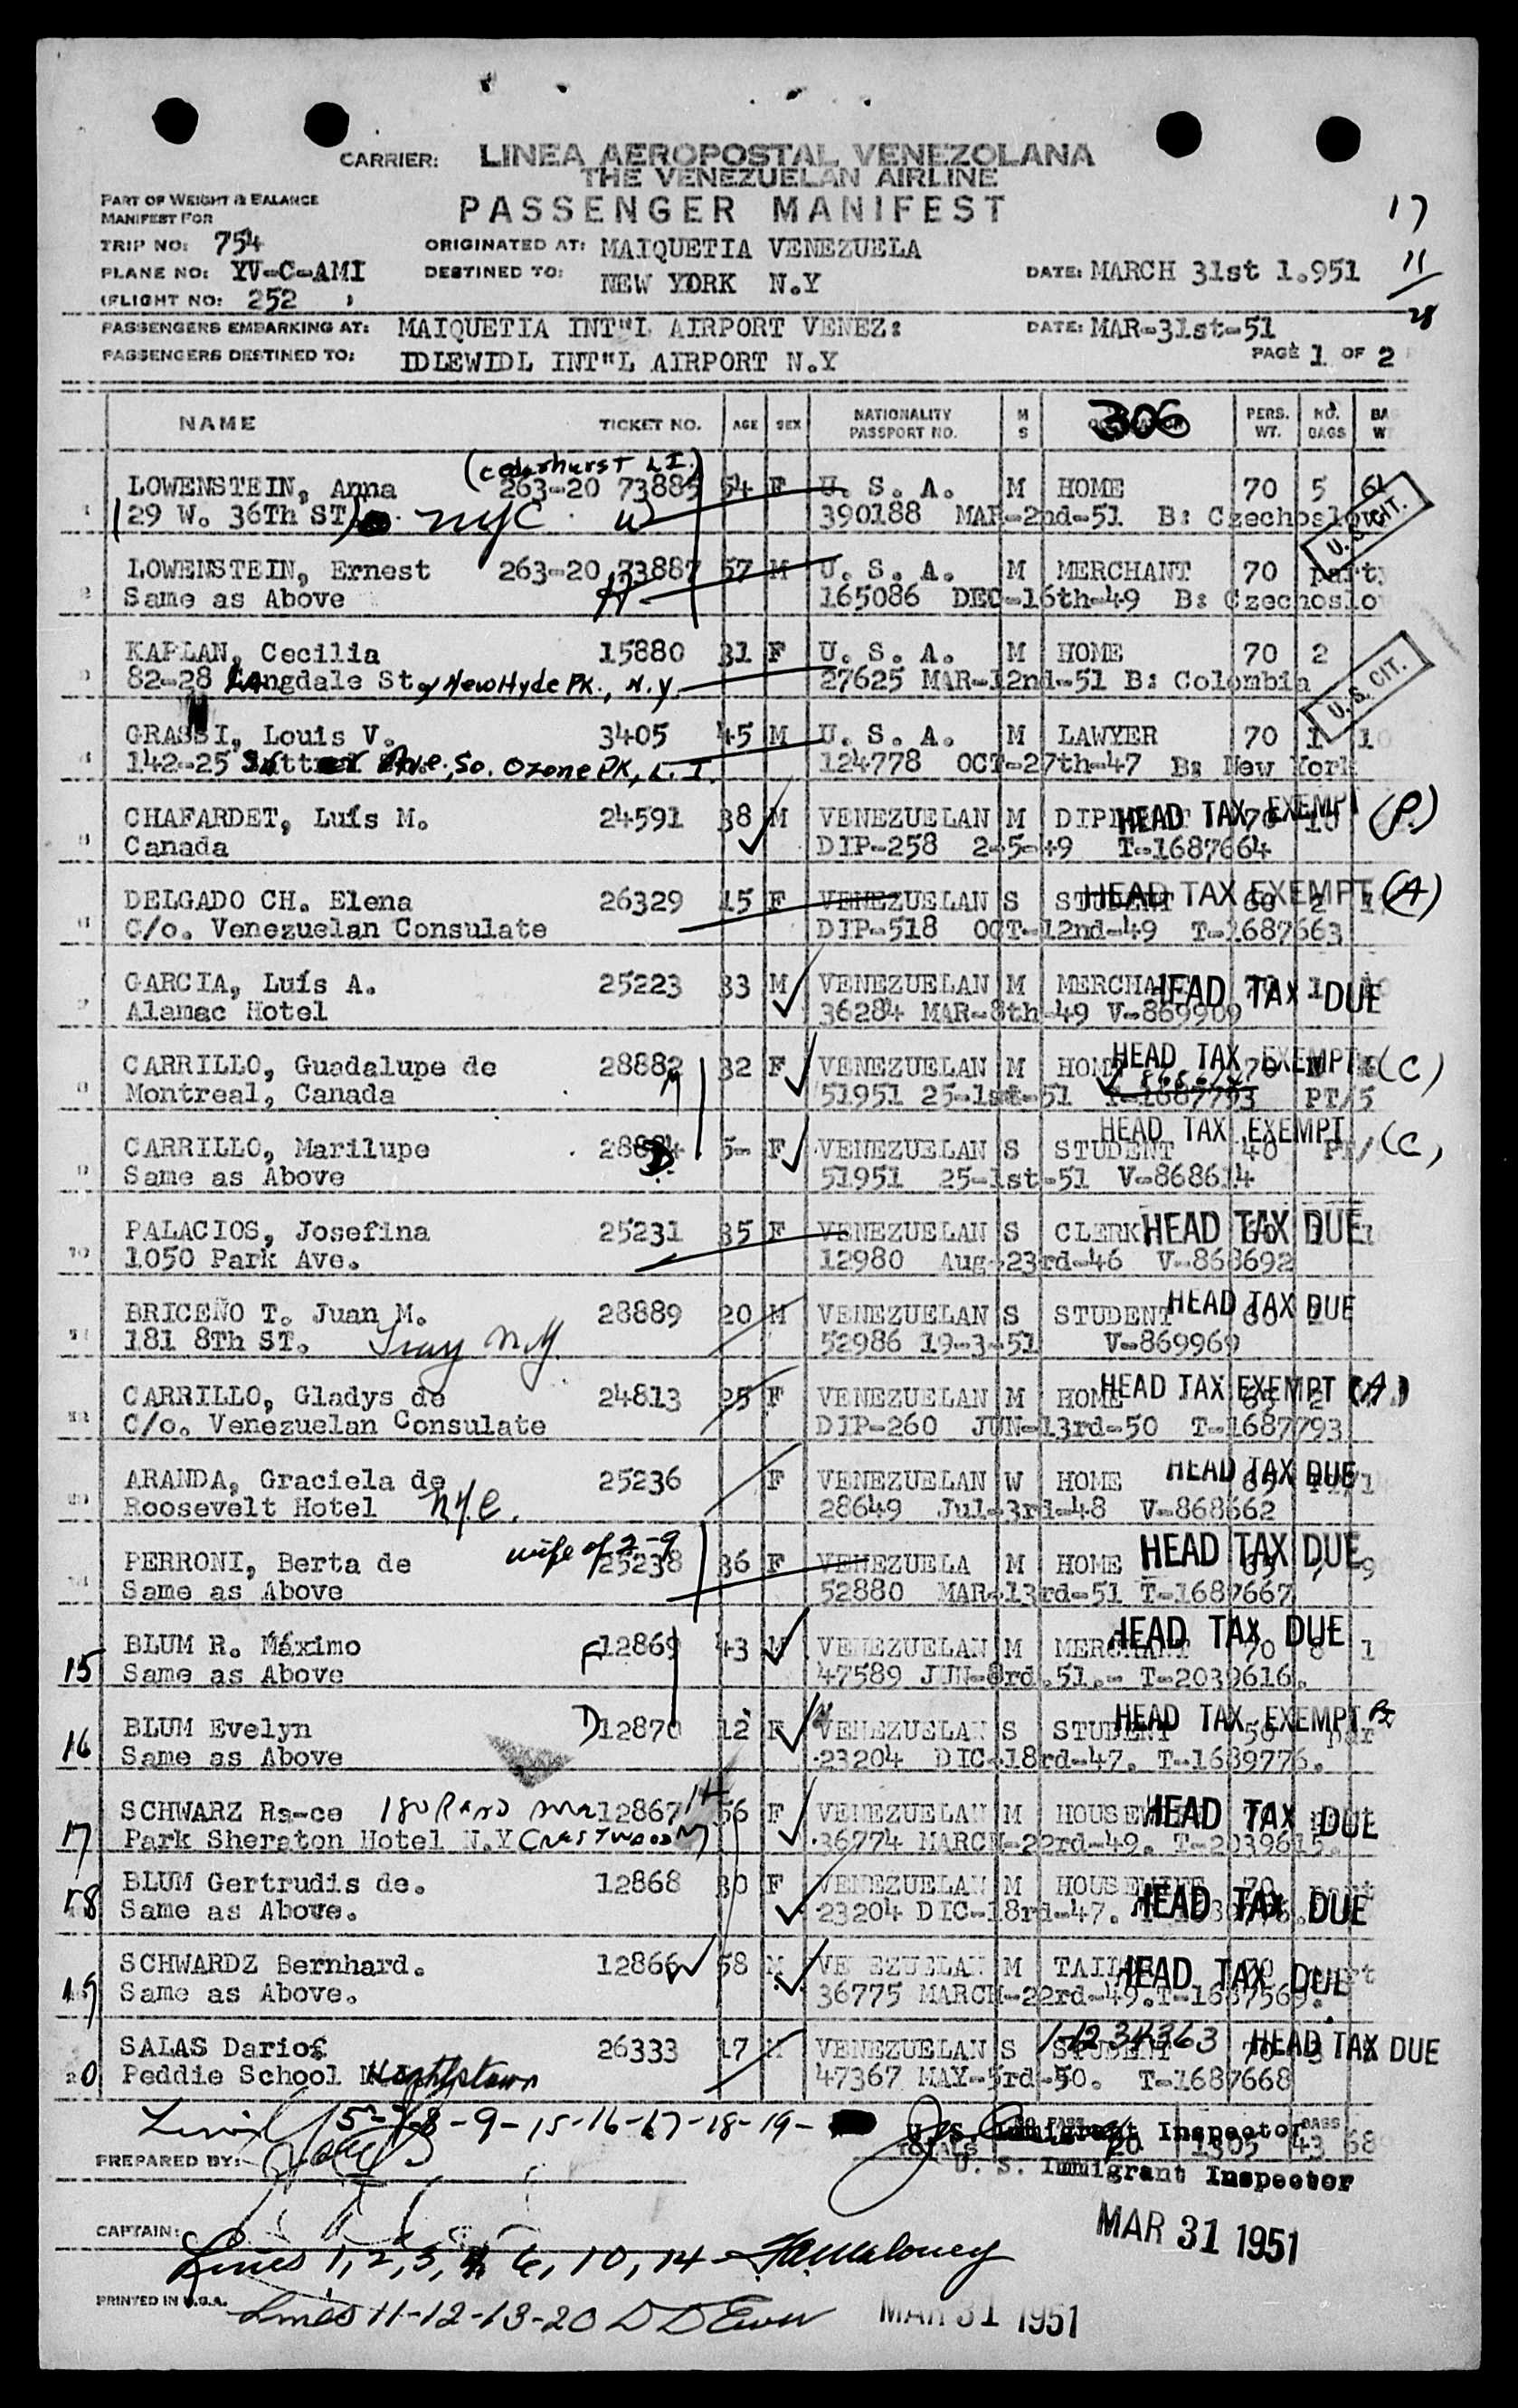 CARRIER: LINEA AEROPOSTAL VENEZOLANA
THE VENEZUELAN AIRLINE
PASSENGER MANIFEST
PART OF WEIGHT & BALANCE
MANIFEST FOR
17
11
28
TRIP NO: 754 ORIGINATED AT: MAIQUETIA VENEZUELA
PLANE NO: YV-C-AMI DESTINED TO: NEW YORK N.Y DATE: MARCH 31st 1.951
(FLIGHT NO: 252 )
PASSENGERS EMBARKING AT: MAIQUETIA INT"L AIRPORT VENEZ: DATE: MAR-31st-51
PASSENGERS DESTINED TO: IDLEWIDL INT"L AIRPORT N.Y PAGE 1 OF 2
NAME TICKET NO. AGE SEX NATIONALITY PASSPORT NO. M S 306 PERS. WT. NO. BAGS BA W
(Cedarhurst L.I.)
LOWENSTEIN, Anna 263-20 73885 54 F U. S. A. M HOME 70 5 64
(29 W. 36Th ST) NYC W 390188 MAR-2nd-51 B: Czechoslov
U. S. CIT.
LOWENSTEIN, Ernest 263-20 73887 57 M U. S. A. M MERCHANT 70 party
Same as Above H 165086 DEC-16th-49 B: Czechoslo
KAPLAN, Cecilia 15880 31 F U. S. A. M HOME 70 2
82-28 Langdale St, New Hyde Pk., N.Y 27625 MAR-12nd-51 B: Colombia
U. S. CIT.
GRASSI, Louis V. 3405 45 M U. S. A. M LAWYER 70 1 10
142-25 Ave., So. Ozone Pk, L. I. 124778 OCT-27th-47 B: New York
CHAFARDET, Luís M. 24591 38 M VENEZUELAN M DIPLOMAT 70 10 HEAD TAX EXEMPT (P.)
Canada DIP-258 2-5-49 T-1687664
DELGADO CH. Elena 26329 15 F VENEZUELAN S STUDENT 60 2 HEAD TAX EXEMPT (A)
C/o. Venezuelan Consulate DIP-518 OCT-12nd-49 T-1687663
GARCIA, Luís A. 25223 33 M VENEZUELAN M MERCHANT 1 HEAD TAX DUE
Alamac Hotel 36284 MAR-8th-49 V-869909
CARRILLO, Guadalupe de 28882 32 F VENEZUELAN M HOME 70 HEAD TAX EXEMPT (C)
Montreal, Canada M 51951 25-1st-51 T-1687793 PT/5
CARRILLO, Marilupe 28884 5- F VENEZUELAN S STUDENT 40 PT/ HEAD TAX EXEMPT (C)
Same as Above D. 51951 25-1st-51 V-868614
PALACIOS, Josefina 25231 35 F VENEZUELAN S CLERK HEAD TAX DUE
1050 Park Ave. 12980 Aug-23rd-46 V-868692
BRICEÑO T. Juan M. 28889 20 M VENEZUELAN S STUDENT 60 HEAD TAX DUE
181 8Th ST. Troy N.Y. 52986 19-3-51 V-869969
CARRILLO, Gladys de 24813 25 F VENEZUELAN M HOME 65 2 HEAD TAX EXEMPT (A)
C/o. Venezuelan Consulate DIP-260 JUN-13rd-50 T-1687793
ARANDA, Graciela de 25236 F VENEZUELAN W HOME 65 HEAD TAX DUE
Roosevelt Hotel N.Y.C. 28649 Jul-3rd-48 V-868662
wife of 2-9
PERRONI, Berta de 25238 36 F VENEZUELA M HOME 65 HEAD TAX DUE
Same as Above 52880 MAR-13rd-51 T-1687667
BLUM R. Máximo F 12869 43 M VENEZUELAN M MERCHANT 70 HEAD TAX DUE
15 Same as Above 47589 JUN-8rd.51.- T-2039616.
BLUM Evelyn D 12870 12 F VENEZUELAN S STUDENT 50 par HEAD TAX EXEMPT
16 Same as Above 23204 DIC-18rd-47. T-1689776.
SCHWARZ Ra-ce 12867 56 F VENEZUELAN M HOUSEWIFE HEAD TAX DUE
17 Park Sheraton Hotel N.Y Crestwood NY 36774 MARCH-22rd-49. T-2039615.
BLUM Gertrudis de. 12868 30 F VENEZUELAN M HOUSEWIFE 70
18 Same as Above. 23204 DIC-18rd-47. HEAD TAX DUE
SCHWARDZ Bernhard. 12866 58 M VE EZUELAN M TAILOR HEAD TAX DUE
19 Same as Above. 36775 MARCH-22rd-49.T-1687569.
SALAS Dario 26333 17 M VENEZUELAN S STUDENT 70 3 HEAD TAX DUE
20 Peddie School Hightstown 47367 MAY-5rd-50. T-1687668
5-7-8-9-15-16-17-18-19-
U. S. Immigrant Inspector
TOTALS 20 1305 43 68
PREPARED BY:
U. S. Immigrant Inspector
CAPTAIN:
MAR 31 1951
Lines 1, 2, 3, 4, 6, 10, 14
PRINTED IN U.S.A.
Lines 11-12-13-20
MAR 31 1951